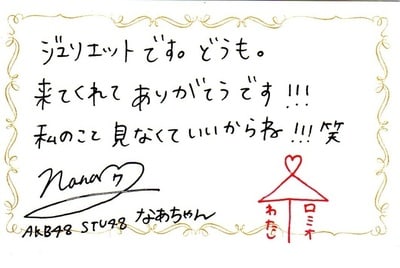 ジュリエットです。どうも。
来てくれてありがとうです!!!
私のこと見なくていいからね!!!笑
nana♡7
AKB48 STU48 なあちゃん
わたし
ロミオ